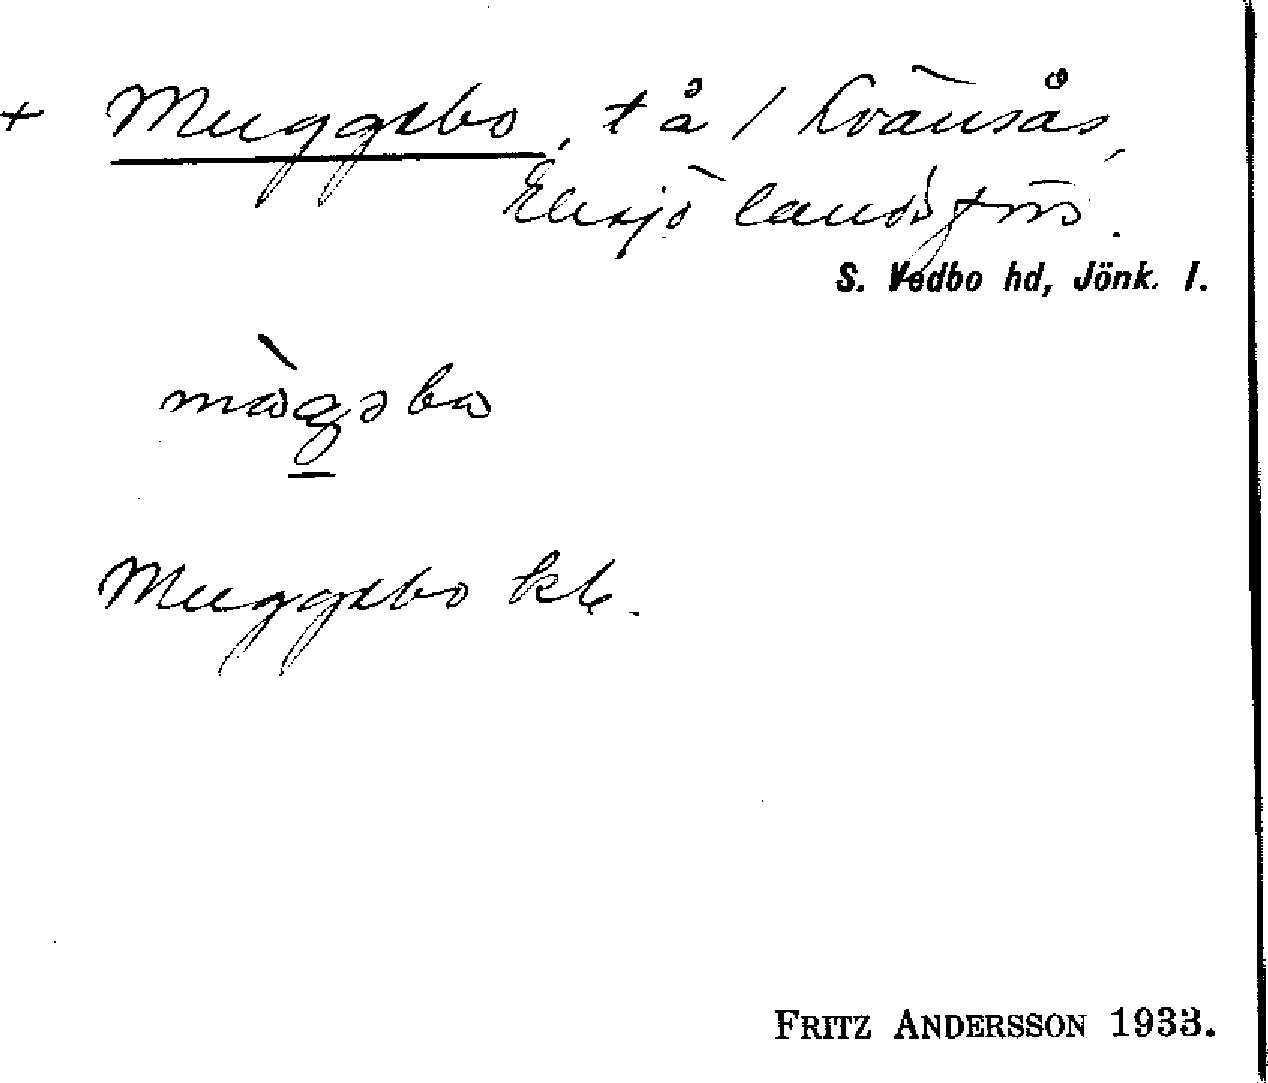 + Muggebo, t å / Kvänsås,
Eksjö landsförs.
S. Vedbo hd, Jönk. l.
Muggebo kb.
FRITZ ANDERSSON 1933.